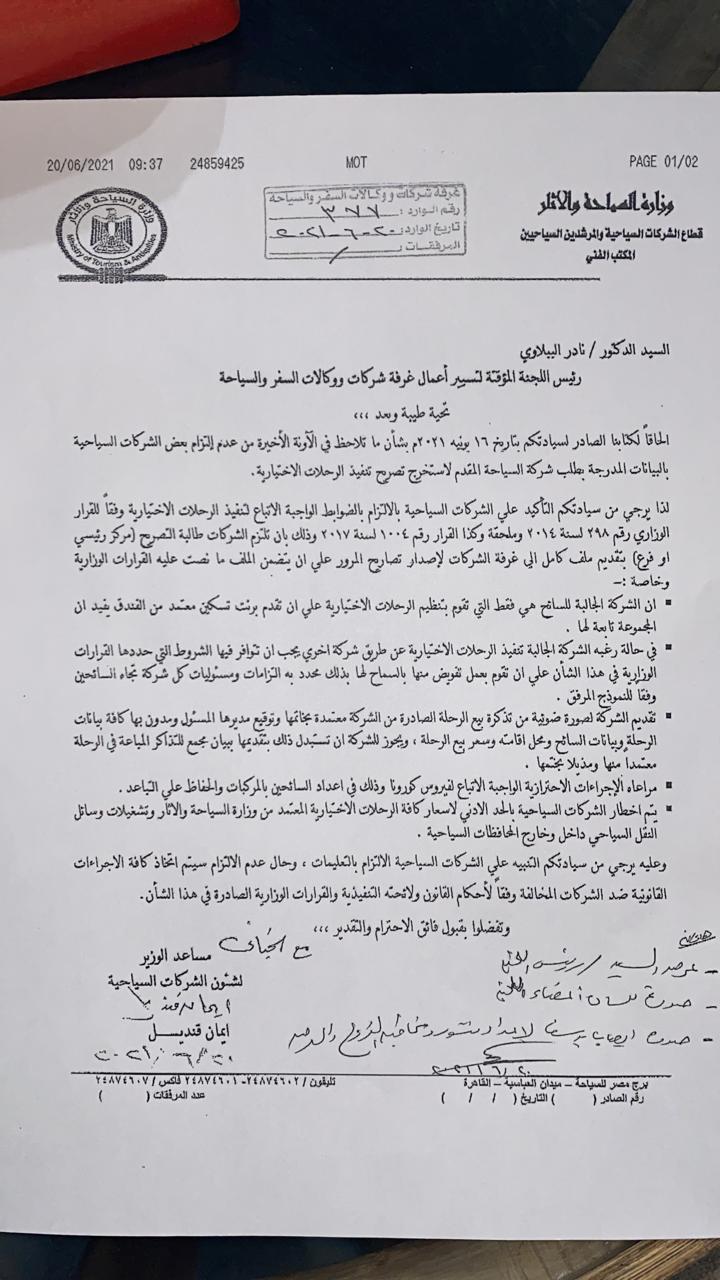 20/06/2021 09:37 24859425 MOT PAGE 01/02
وزارة السياحة والآثار
قطاع الشركات السياحية والمرشدين السياحيين
المكتب الفني
غرفة شركات ووكالات السفر والسياحة
رقم الوارد : ٣٧٧
تاريخ الوارد : ٢٠-٦-٢٠٢١
المرفقات :
وزارة السياحة والآثار
Ministry of Tourism & Antiquities
السيد الدكتور / نادر الببلاوي
رئيس اللجنة المؤقتة لتسيير أعمال غرفة شركات ووكالات السفر والسياحة
تحية طيبة وبعد ،،،
الحاقاً لكتابنا الصادر لسيادتكم بتاريخ ١٦ يونيه ٢٠٢١م بشأن ما تلاحظ في الآونة الأخيرة من عدم إلتزام بعض الشركات السياحية
بالبيانات المدرجة بطلب شركة السياحة المقدم لاستخرج تصريح تنفيذ الرحلات الاختيارية.
لذا يرجي من سيادتكم التأكيد علي الشركات السياحية بالالتزام بالضوابط الواجبة الاتباع لتنفيذ الرحلات الاختيارية وفقاً للقرار
الوزاري رقم ٢٩٨ لسنة ٢٠١٤ وملحقة وكذا القرار رقم ١٠٠٤ لسنة ٢٠١٧ وذلك بان تلتزم الشركات طالبة التصريح (مركز رئيسي
او فرع) بتقديم ملف كامل الى غرفة الشركات لإصدار تصاريح المرور علي ان يتضمن الملف ما نصت عليه القرارات الوزارية
وخاصة :–
▪ ان الشركة الجالبة للسائح هي فقط التي تقوم بتنظيم الرحلات الاختيارية علي ان تقدم برنت تسكين معتمد من الفندق يفيد ان
المجموعة تابعة لها .
▪ في حالة رغبه الشركة الجالبة تنفيذ الرحلات الاختيارية عن طريق شركة اخري يجب ان تتوافر فيها الشروط التي حددها القرارات
الوزارية في هذا الشأن علي ان تقوم بعمل تفويض منها بالسماح لها بذلك محدد به التزامات ومسئوليات كل شركة تجاه السائحين
وفقاً للنموذج المرفق .
▪ تقديم الشركة لصورة ضوئية من تذكرة بيع الرحلة الصادرة من الشركة معتمدة بخاتمها وتوقيع مديرها المسئول ومدون بها كافة بيانات
الرحلة وبيانات السائح ومحل اقامته وسعر بيع الرحلة ، ويجوز للشركة ان تستبدل ذلك بتقديمها ببيان مجمع للتذاكر المباعة في الرحلة
معتمداً منها ومذيلا بختمها .
▪ مراعاه الإجراءات الاحترازية الواجبة الاتباع لفيروس كورونا وذلك في اعداد السائحين بالمركبات والحفاظ علي التباعد .
▪ يتم اخطار الشركات السياحية بالحد الادني لاسعار كافة الرحلات الاختيارية المعتمد من وزارة السياحة والاثار وتشغيلات وسائل
النقل السياحي داخل وخارج المحافظات السياحية .
وعليه يرجي من سيادتكم التنبيه علي الشركات السياحية الالتزام بالتعليمات ، وحال عدم الالتزام سيتم اتخاذ كافة الاجراءات
القانونية ضد الشركات المخالفة وفقاً لأحكام القانون ولائحته التنفيذية والقرارات الوزارية الصادرة في هذا الشأن.
وتفضلوا بقبول فائق الاحترام والتقدير ،،،
مساعد الوزير
لشئون الشركات السياحية
ايمان قنديل
برج مصر للسياحة – ميدان العباسية – القاهرة تليفون / ٢٤٨٧٤٦٠٢- ٢٤٨٧٤٦٠١ فاكس / ٢٤٨٧٤٦٠٧
رقم الصادر ( ) التاريخ ( / / ) عدد المرفقات ( )